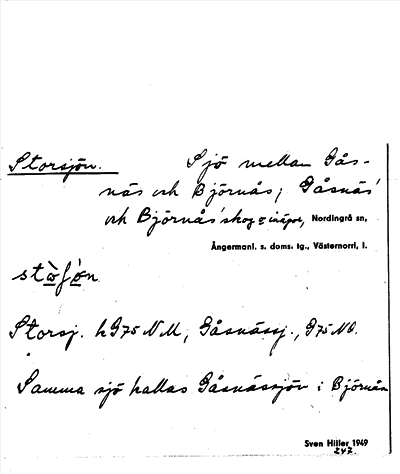 Storsjön. Sjö mellan Gås-
näs och Björnås; Gåsnäs'
och Björnås' skog Nordingrå sn,
Ångermanl. s. doms. tg., Västernorrl. l.
stò̱fò̱n
Storsj. h G75 NM, Gåsnässj., G75 NO.
Samma sjö kallas Gåsnässjön i Björnås
Sven Hiller 1949
242